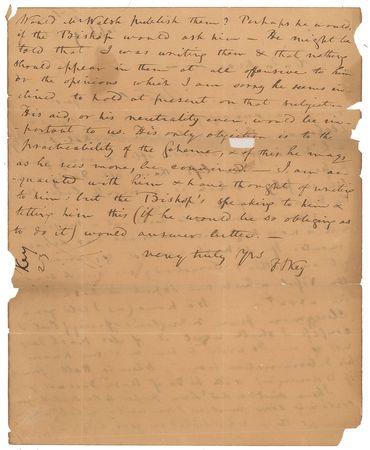 Would Mr Walsh publish them? Perhaps he would,
if the Bishop would ask him — He might be
told that I was writing them & that nothing
should appear in them at all offensive to him
or the opinions which I am sorry he seems in-
clined to hold at present on that subject.
His aid, or his neutrality even, would be im-
portant to us. His only objection is to the
practicability of the Scheme, & of this he may
as he sees more, be convinced. — I am ac-
quainted with him & have thought of writing
to him: but the Bishop's speaking to him &
telling him this (if he would be so obliging as
to do it) would answer better. —
very truly Yrs
F S Key
Key
23